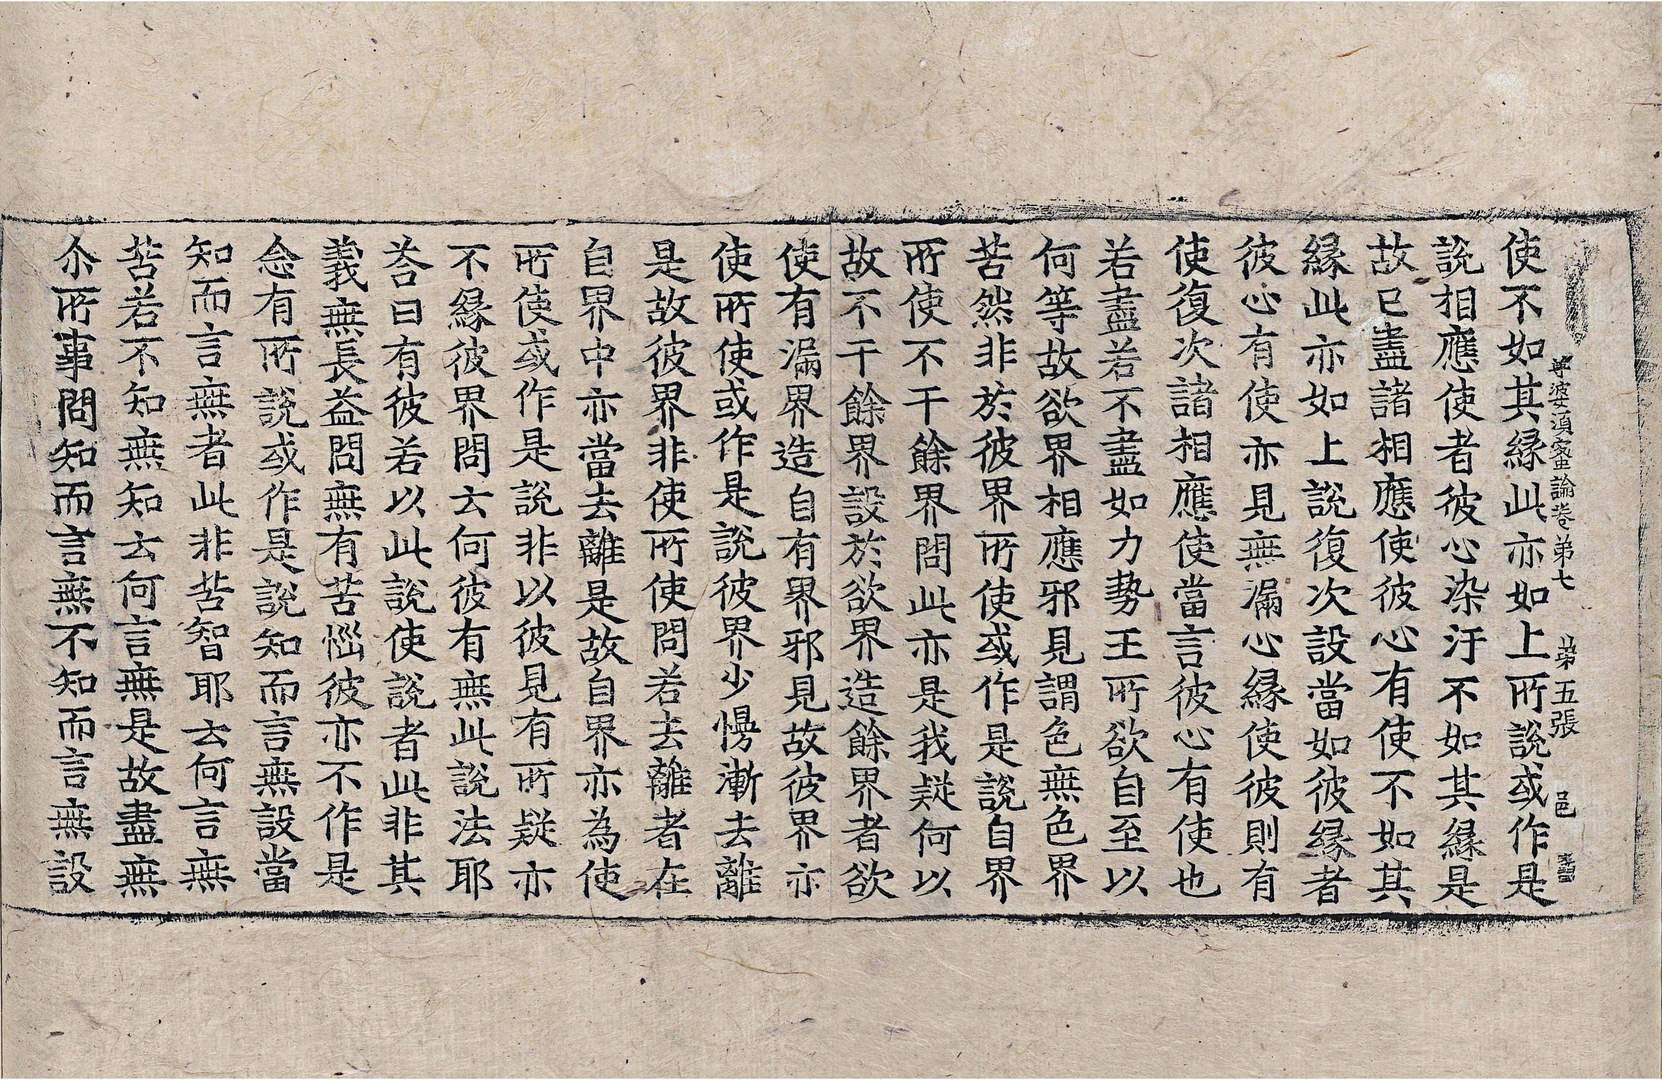 尊婆須蜜論卷第七　第五張　邑
使不如其縁此亦如上所說或作是
說相應使者彼心染汙不如其縁是
故已盡諸相應使彼心有使不如其
縁此亦如上說復次設當如彼縁者
彼心有使亦見無漏心縁使彼則有
使復次諸相應使當言彼心有使也
若盡若不盡如力勢王所欲自至以
何等故欲界相應邪見謂色無色界
苦然非於彼界所使或作是說自界
所使不干餘界問此亦是我疑何以
故不干餘界設於欲界造餘界者欲
使有漏界造自有界邪見故彼界亦
使所使或作是說彼界少慢漸去離
是故彼界非使所使問若去離者在
自界中亦當去離是故自界亦為使
所使或作是說非以彼見有所疑亦
不緣彼界問云何彼有無此說法耶
荅曰有彼若以此說使說者此非其
義無長益問無有苦惱彼亦不作是
念有所說或作是說知而言無設當
知而言無者此非苦智耶云何言無
苦若不知無知云何言無是故盡無
尒所事問知而言無不知而言無設